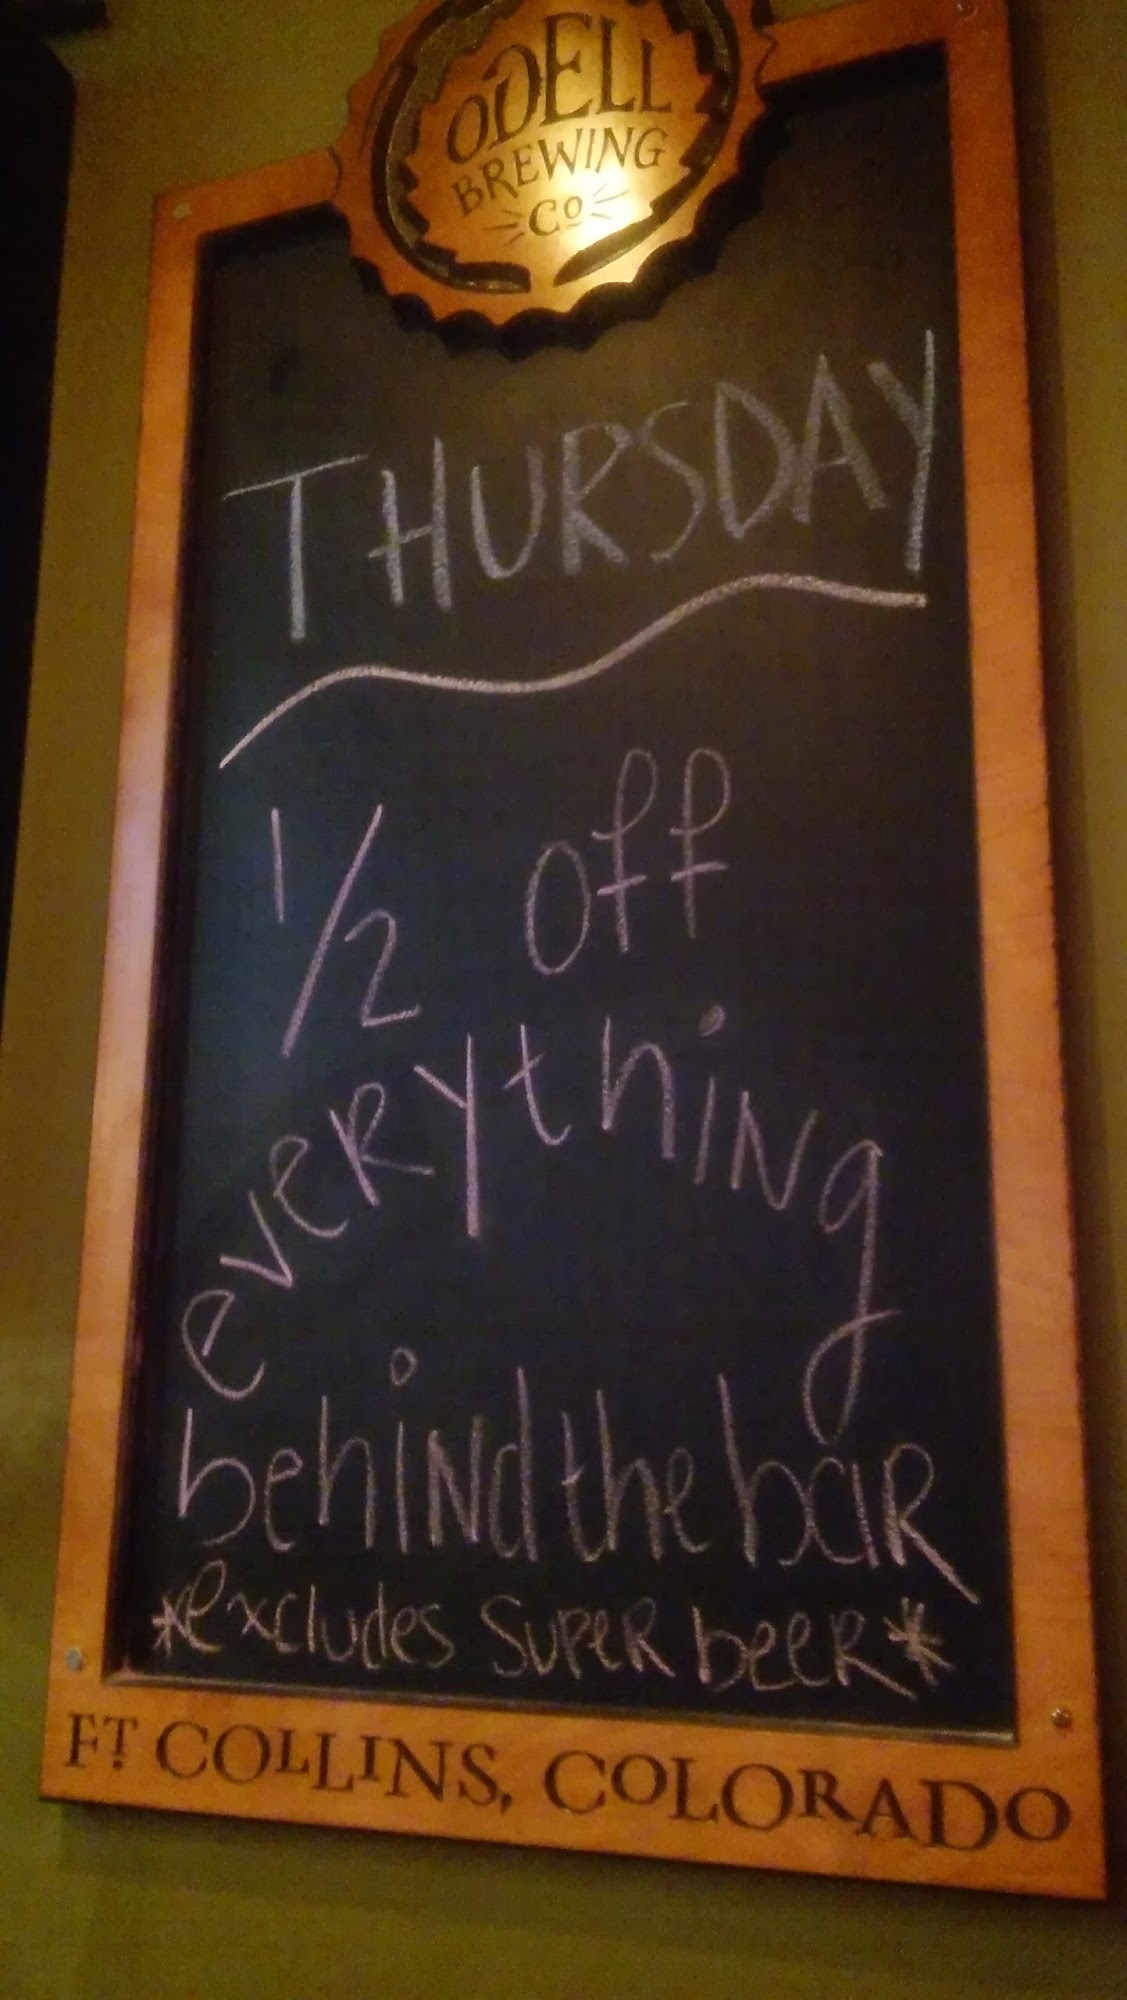 ODELL
BREWING
Co
THURSDAY
1/2 off
everything
behind the bar
*excludes super beer*
FT COLLINS, COLORADO